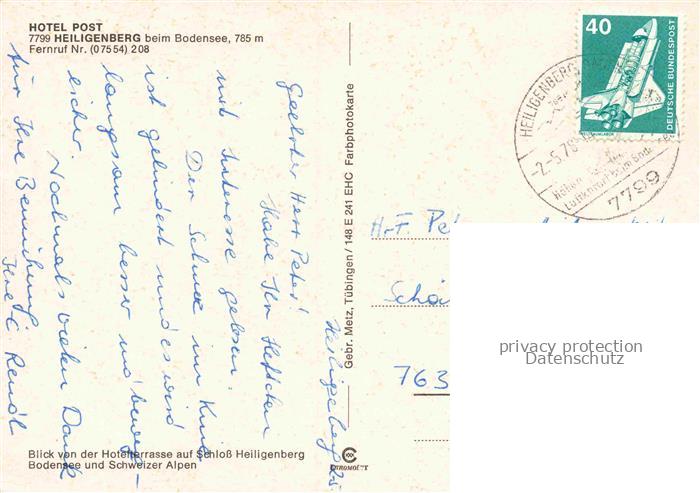 HOTEL POST
7799 HEILIGENBERG beim Bodensee, 785 m
Fernruf Nr. (07554) 208
Heiligenberg 2.5.
Geehrter Herr Peter!
Habe Ihr Heftchen
mit Interesse gelesen.
Der Schmerz im Knie
ist gelindert und es wird
langsam besser und beweg-
licher. Nochmals vielen Dank
für Ihre Bemühung
Blick von der Hotelterrasse auf Schloß Heiligenberg
Bodensee und Schweizer Alpen
Gebr. Metz, Tübingen / 148 E 241 EHC Farbphotokarte
CHROMOLUX
40
DEUTSCHE BUNDESPOST
HEILIGENBERG
-2.-5.79
7799
763
privacy protection
Datenschutz